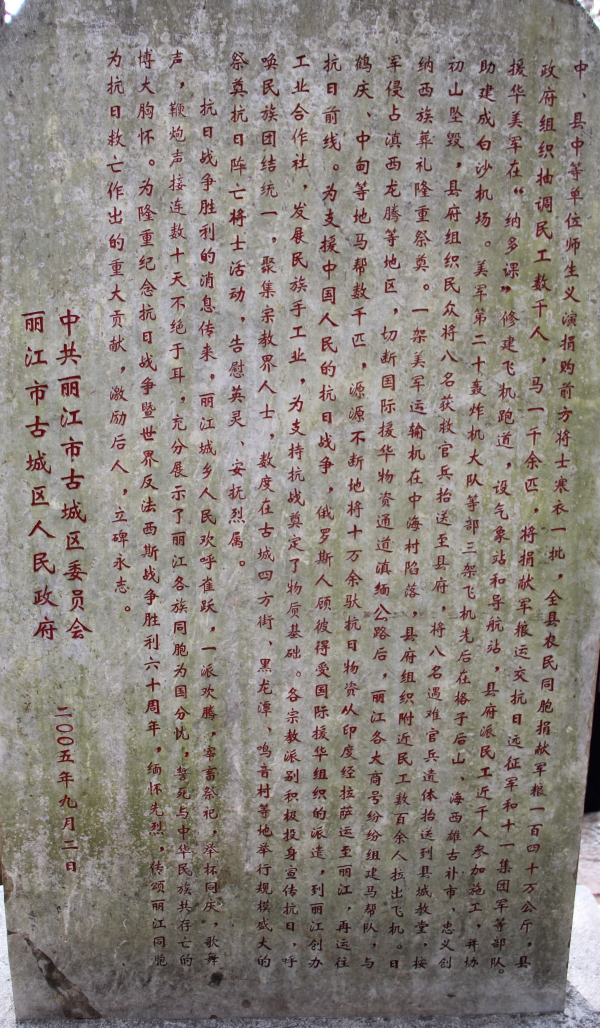 中、县中等单位师生义演捐购前方将士寒衣一批，全县农民同胞捐献军粮一百四十万公斤，县
政府组织抽调民工数千人，马一千余匹，将捐献军粮运交抗日远征军和十一集团军等部队。
援华美军在“纳多课”修建飞机跑道，设气象站和导航站，县府派民工近千人参加施工，并协
助建成白沙机场。美军第二十轰炸机大队等部三架飞机先后在格子后山、海西雄古补市、忠义创
初山坠毁，县府组织民众将八名获救官兵抬送至县府，将八名遇难官兵遗体抬送到县城教堂，按
纳西族葬礼隆重祭奠。一架美军运输机在中海村陷落，县府组织附近民工数百余人拉出飞机。日
军侵占滇西龙腾等地区，切断国际援华物资通道滇缅公路后，丽江各大商号纷纷组建马帮队，与
鹤庆、中甸等地马帮数千匹，源源不断地将十万余驮抗日物资从印度经拉萨运至丽江，再运往
抗日前线。为支援中国人民的抗日战争，俄罗斯人顾彼得受国际援华组织的派遣，到丽江创办
工业合作社，发展民族手工业，为支持抗战奠定了物质基础。各宗教派别积极投身宣传抗日，呼
唤民族团结统一，聚集宗教界人士，数度在古城四方街、黑龙潭、鸣音村等地举行规模盛大的
祭奠抗日阵亡将士活动，告慰英灵、安抚烈属。
抗日战争胜利的消息传来，丽江城乡人民欢呼雀跃，一派欢腾，宰畜祭祀，举杯同庆，歌舞
声，鞭炮声接连数十天不绝于耳，充分展示了丽江各族同胞为国分忧，誓死与中华民族共存亡的
博大胸怀。为隆重纪念抗日战争暨世界反法西斯战争胜利六十周年，缅怀先烈，传颂丽江同胞
为抗日救亡作出的重大贡献，激励后人，立碑永志。
中共丽江市古城区委员会
丽江市古城区人民政府
二〇〇五年九月三日